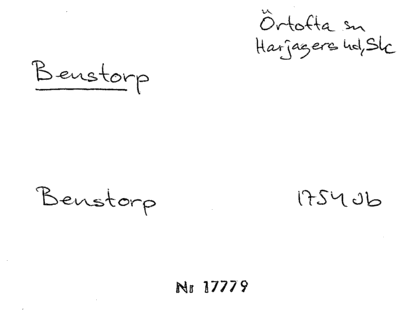 Örtofta sn
Harjagers hd, Sk
Benstorp
Benstorp 1754 Jb
Nr 17779